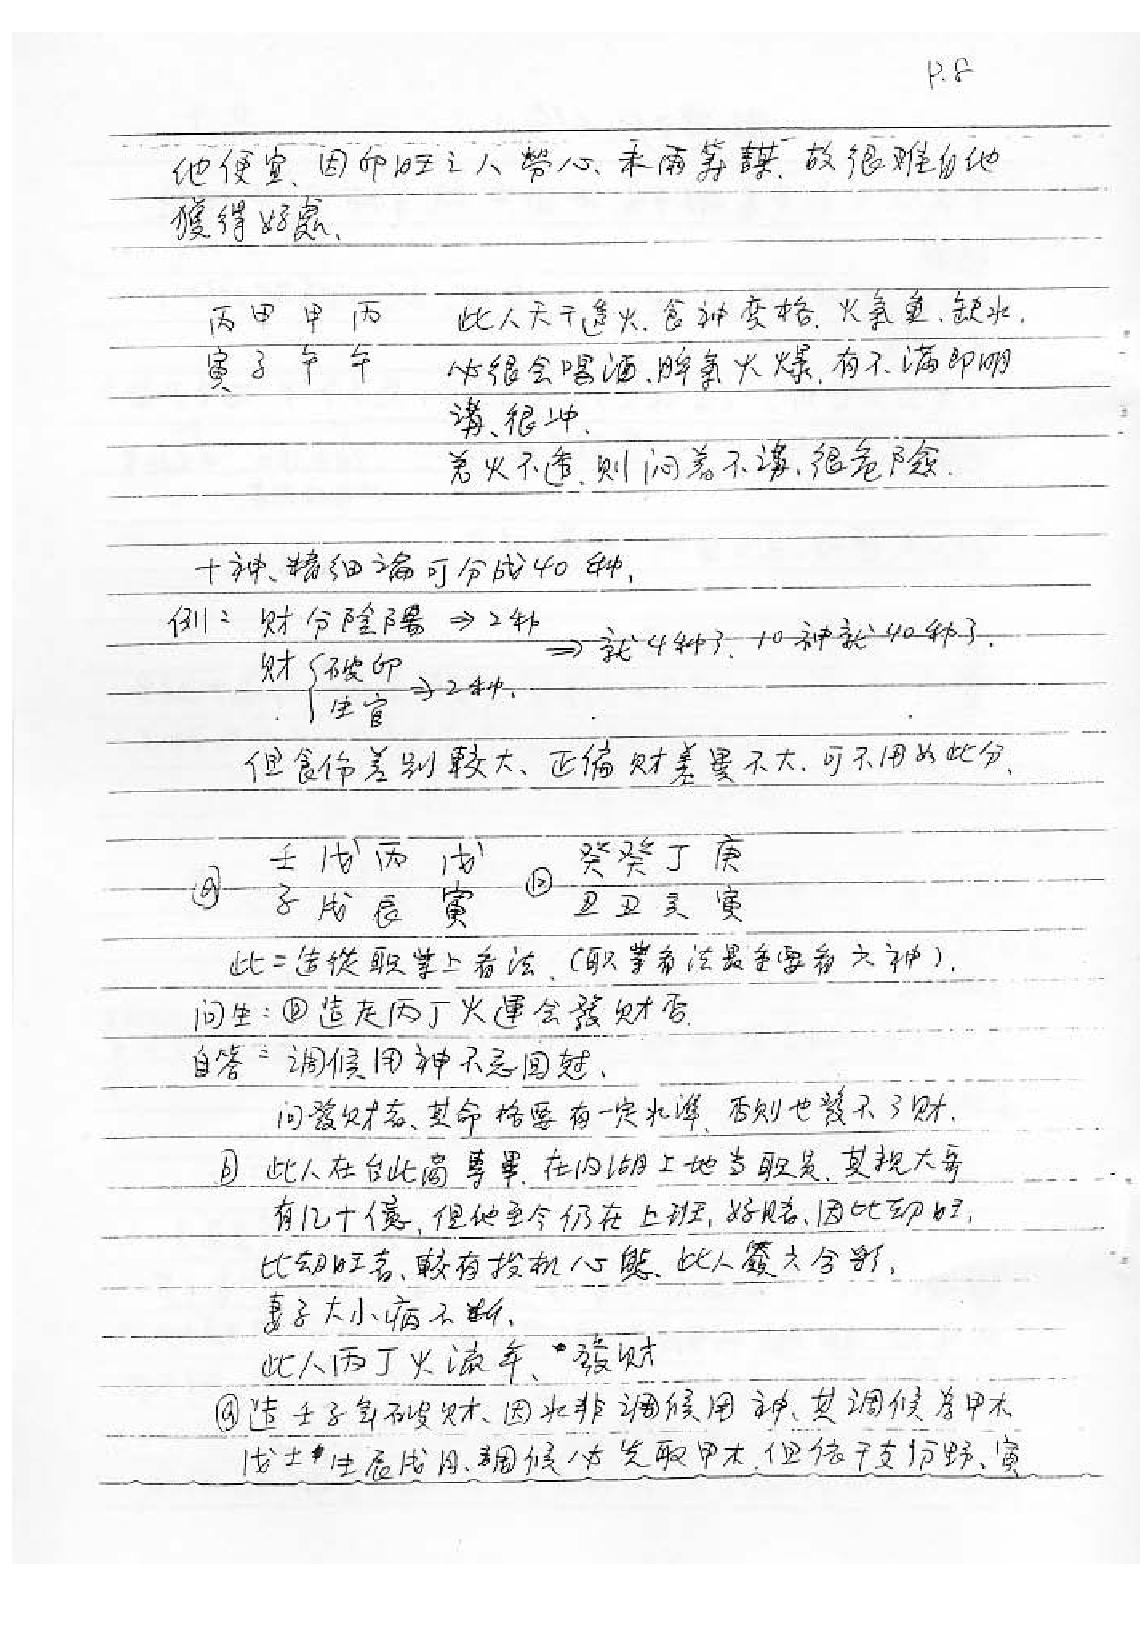 P.8
他便宜、因印旺之人勞心、未雨籌謀、故很難自他
獲得好處、
丙甲甲丙 此人天干透火、食神變格、火氣重、缺水、
寅子午午 必很会喝酒、脾氣火爆、有不滿即明
講、很冲、
若火不透、则闷着不講、很危險、
十神、精細論可分成40种、
例：财分陰陽⇒2种
⇒就4种了、10神就40种了、
财{破印 生官⇒2种、
但食伤差别較大、正偏财差異不大、可不用如此分、
ⓐ 壬戊丙戊 ⓑ 癸癸丁庚
子戌辰寅 丑丑亥寅
此二造從职業上看法、(职業看法最重要看六神)、
问生：ⓑ造走丙丁火運会發财否
自答：调候用神不忌回尅、
问發财者、其命格要有一定水準、否则也發不了财、
ⓑ 此人在台北商專畢、在内湖上地当职員、其親大哥
有几十億、但他至今仍在上班、好賭、因比劫旺、
比劫旺者、較有投机心態、此人簽六合彩、
妻子大小病不断、
此人丙丁火流年、發财
ⓐ造壬子年破财、因水非调候用神、其调候为甲木
戊土生辰戌月、调候必先取甲木、但依干支份野、寅